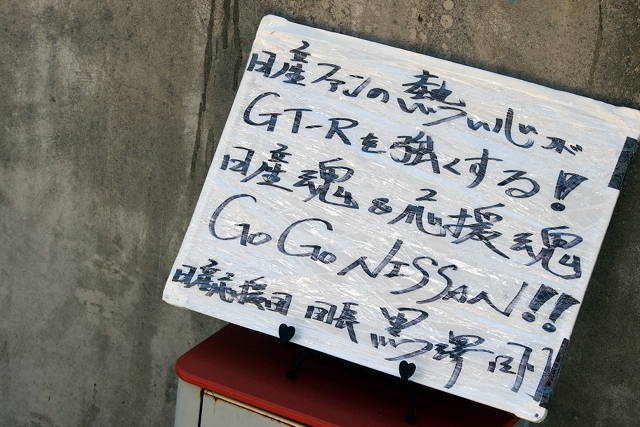 日産ファンの熱い心が
GT-Rを強くする!
日産魂&応援魂
Go Go NISSAN!!!
日産応援団 団長 黒澤